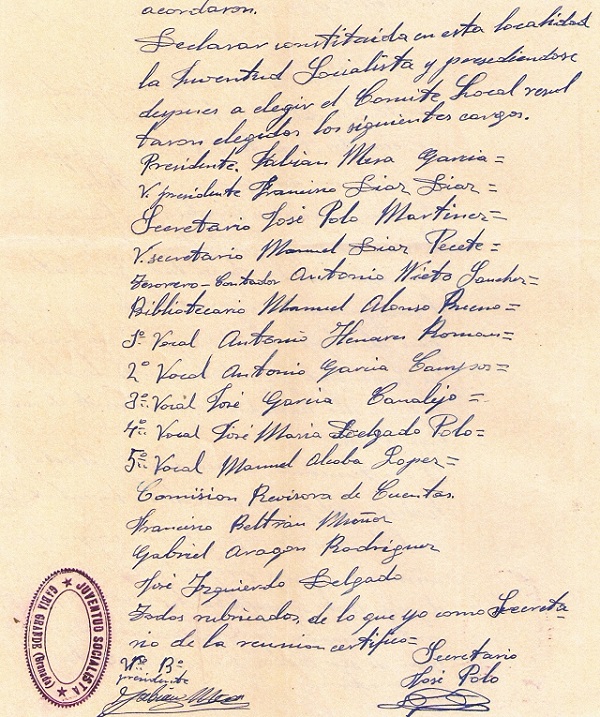 acordaron.
Declarar constituida en esta localidad
la Juventud Socialista y procediendose
despues a elegir el Comite Local resul
taron elegidos los siguientes cargos.
Presidente. Fabian Mesa Garcia=
V. presidente Francisco Diaz Diaz=
Secretario José Polo Martinez=
V. secretario Manuel Diaz Pecete=
Tesorero-Contador Antonio Nieto Sanchez=
Bibliotecario Manuel Alonso Bueno=
1º Vocal Antonio Henares Roman=
2º Vocal Antonio Garcia Campos=
3º Vocal José Garcia Canalejo=
4º Vocal José Maria Delgado Polo=
5º Vocal Manuel Alcoba Lopez=
Comision Revisora de Cuentas.
Francisco Beltran Muñoz
Gabriel Aragon Rodriguez
José Izquierdo Delgado
Todos rubricados, de lo que yo como Secreta-
rio de la reunion certifico=
Vº Bº
presidente
Fabian Mesa
Secretario
José Polo
JUVENTUD SOCIALISTA
GABIA GRANDE